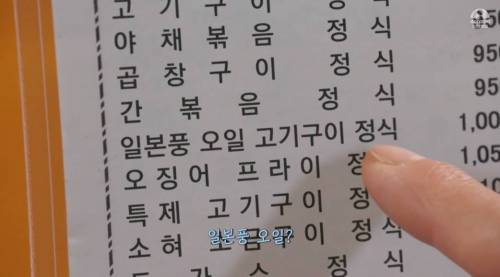 고 기 구 이 정 식
야 채 볶 음 정 식
곱 창 구 이 정 식 950
간 볶 음 정 식 95
일본풍 오일 고기구이 정식 1,00
오 징 어 프 라 이 정 1,05
특 제 고 기 구 이 정
소 혀 소 금 구 이 정 식
일본풍 오일?